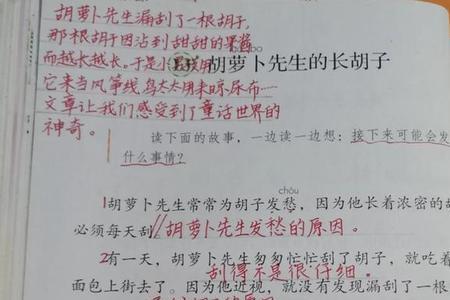 胡萝卜先生漏刮了一根胡子,
那根胡子因沾到甜甜的果酱
而越长越长。于是小男孩用
它来当风筝线,鸟太太用来晾尿布……
文章让我们感受到了童话世界的
神奇。
胡萝卜先生的长胡子
读下面的故事,一边读一边想:接下来可能会发
什么事情?
chóu
1胡萝卜先生常常为胡子发愁,因为他长着浓密的胡
必须每天刮//胡萝卜先生发愁的原因。
2有一天,胡萝卜先生匆匆忙忙刮了胡子,就吃着
刮得不是很仔细.
面包上街去了。因为他近视,就没有发现漏刮了一根